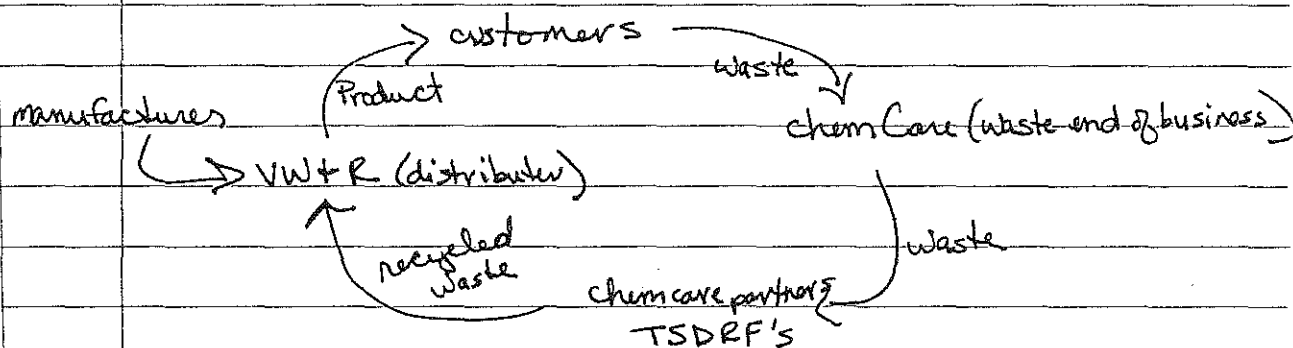 customers
waste
Product
manufactures
chemCare (waste end of business)
VW+R (distributer)
waste
recycled
waste
chemcare partners
TSDRF's